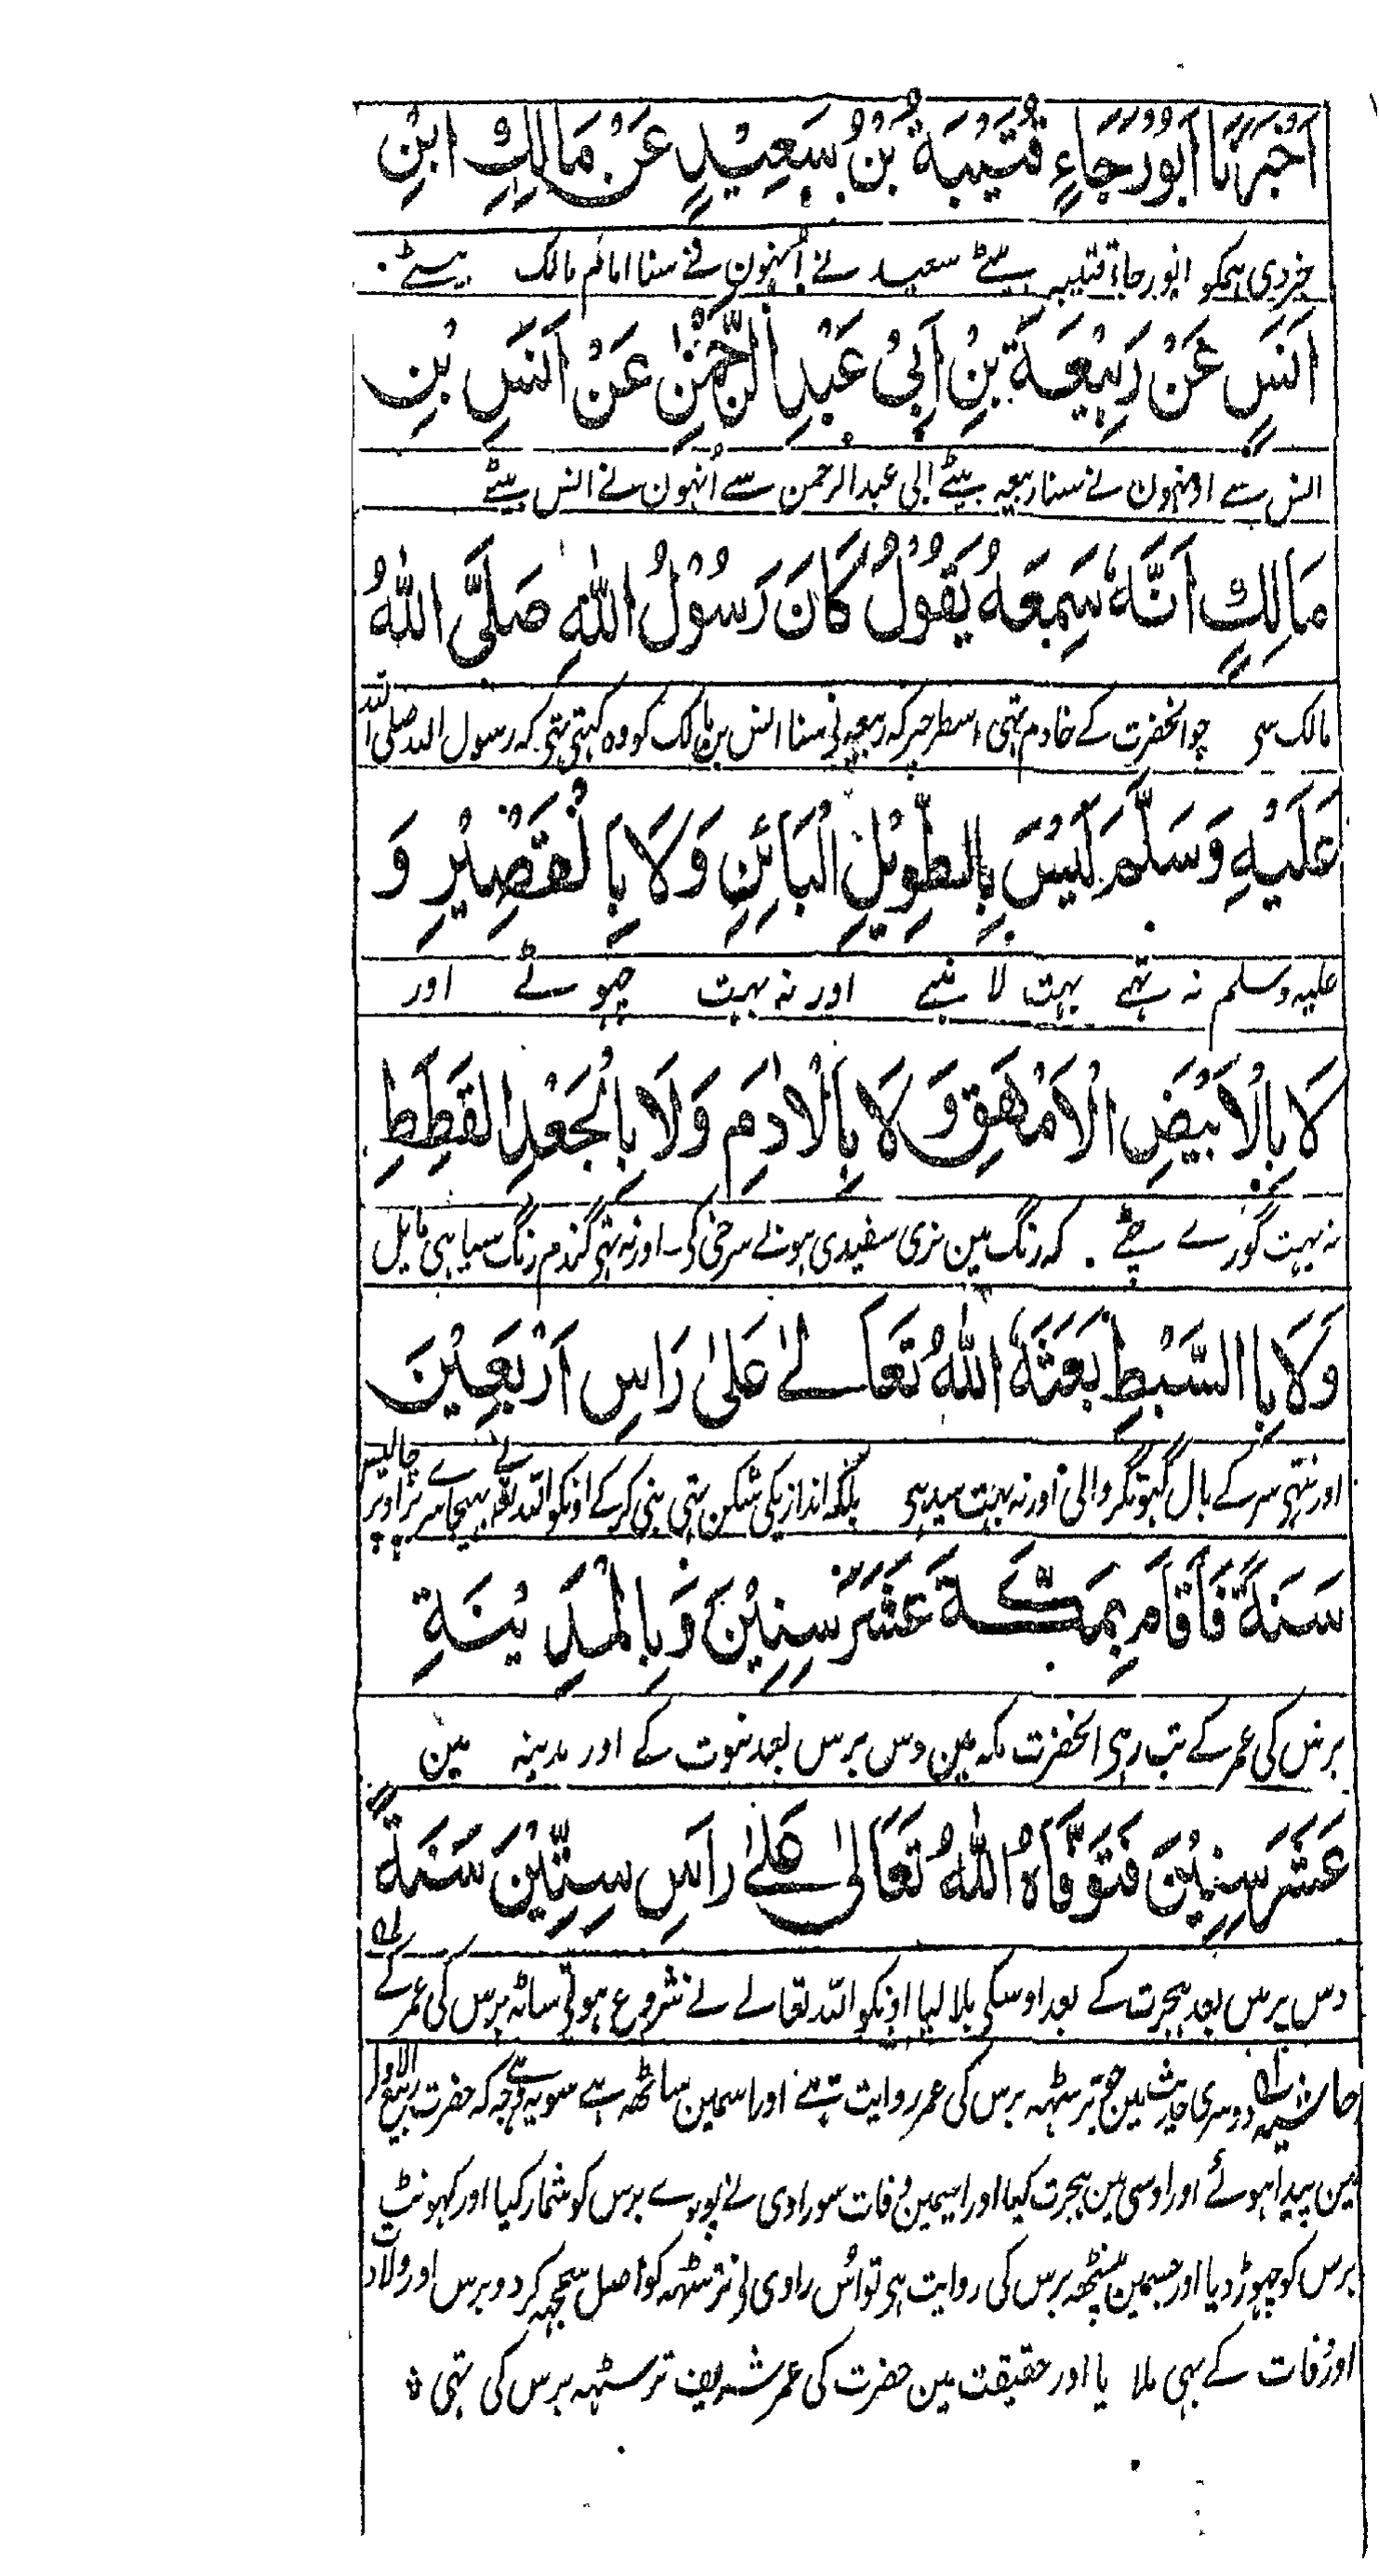 اَخْبَرَنَا اَبُوْرَجَاءٍ قُتَيْبَةُ بْنُ سَعِيْدٍ عَنْ مَالِكِ ابْنِ
خبر دی ہمکو ابورجاء قتیبہ بیٹے سعید نے اُنہون نے سنا امام مالک بیٹے
اَنَسٍ عَنْ رَبِيْعَةَ بْنِ اَبِيْ عَبْدِ الرَّحْمٰنِ عَنْ اَنَسِ بْنِ
انس سے اونہون نے سنا ربیعہ بیٹے ابی عبدالرحمن سے اُنہون نے انس بیٹے
مَالِكٍ اَنَّهٗ سَمِعَهُ يَقُوْلُ كَانَ رَسُوْلُ اللهِ صَلَّى اللهُ
مالک سی جو انحضرت کے خادم تہی اسطرحپر کہ ربیعہ نی سنا انس بن مالک کو وہ کہتی تہی کہ رسول اللہ صلی اللہ
عَلَيْهِ وَسَلَّمَ لَيْسَ بِالطَّوِيْلِ الْبَائِنِ وَلَا بِالْقَصِيْرِ وَ
علیہ وسلم نہ تہے بہت لانبے اور نہ بہت چہوٹے اور
لَا بِالْاَبْيَضِ الْاَمْهَقِ وَلَا بِالْاٰدَمِ وَلَا بِالْجَعْدِ الْقَطَطِ
نہ بہت گورے چٹے . کہ رنگ مین نری سفیدی ہو نے سرخی کی ۔ اور نہ تہی گندم رنگ سیاہی مایل
وَلَا بِاالسَّبْطِ بَعَثَهُ اللهُ تَعَالٰے عَلٰى رَاسِ اَرْبَعِيْنَ
اور نتہی سر کے بال گہونگر والی اور نہ بہت سیدہی بلکہ اندازیکی شکن تہی بنی کرکے اونکو اللہ تعالے نے بہیجا سرے پر اوپر چالیس
سَنَةً فَاَقَامَ بِمَكَّةَ عَشَرَ سِنِيْنَ وَبِالْمَدِيْنَةِ
برس کی عمر کے تب رہی انحضرت مکہ مین دس برس بعد نبوت کے اور مدینہ مین
عَشَرَ سِنِيْنَ فَتَوَفَّاهُ اللهُ تَعَالٰى عَلٰے رَاسِ سِتِّيْنَ سَنَةً
دس برس بعد ہجرت کے بعد اوسکی بلا لیا اونکو اللہ تعالے نے شروع ہوتی ساٹہ برس کی عمر کے
حاشیہ دوسری حدیث مین جو ترسٹہہ برس کی عمر روایت ہے اور اسمین ساٹھہ ہے سو یہ وجہ ہے کہ حضرت ربیع الاول
مین پیدا ہوئے اور اوسی مین ہجرت کیا اور اسیمین وفات سو راوی نے پورے برس کو شمار کیا اور کہونٹ
برس کو چہوڑ دیا اور جسمین پینٹھہ برس کی روایت ہی تو اُس راوی نی ترسٹہہ کو اصل سمجہہ کر دو برس اور ولادت
اور وفات کے بہی ملا یا اور حقیقت مین حضرت کی عمر شریف ترسٹہہ برس کی تہی